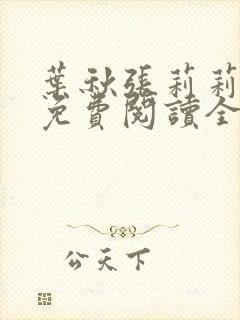 葉秋張莉莉
免費閱讀全
公天下